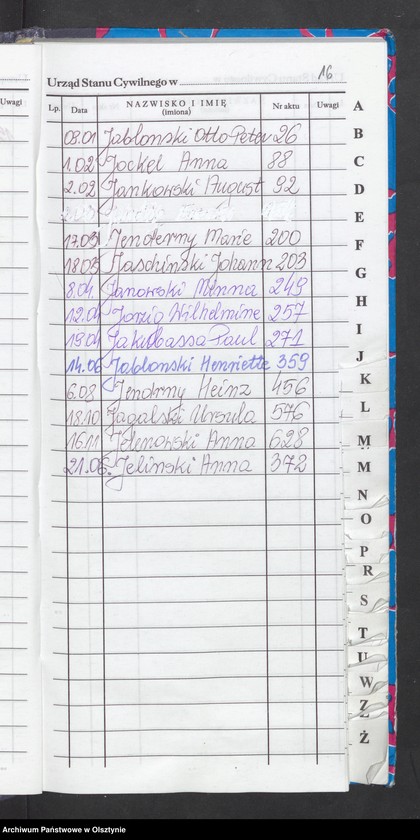 16
Urząd Stanu Cywilnego w
Uwagi
Lp. Data NAZWISKO I IMIĘ (imiona) Nr aktu Uwagi
03.01 Jabłonski Otto Peter 26
1.02 Jockel Anna 88
2.02 Jankowski August 92
17.03 Jenderny Marie 200
18.03 Jaschinski Johann 203
8.04. Janowski Minna 249
12.04 Jorzio Wilhelmine 257
19.04 Jakubassa Paul 271
14.06 Jabłonski Henriette 359
6.08 Jendrny Heinz 456
18.10 Jagalski Ursula 576
16.11 Jelenowski Anna 628
21.06. Jelinski Anna 372
A
B
C
D
E
F
G
H
I
J
K
L
M
M
N
O
P
R
S
T
U
W
Z
Ż
Archiwum Państwowe w Olsztynie